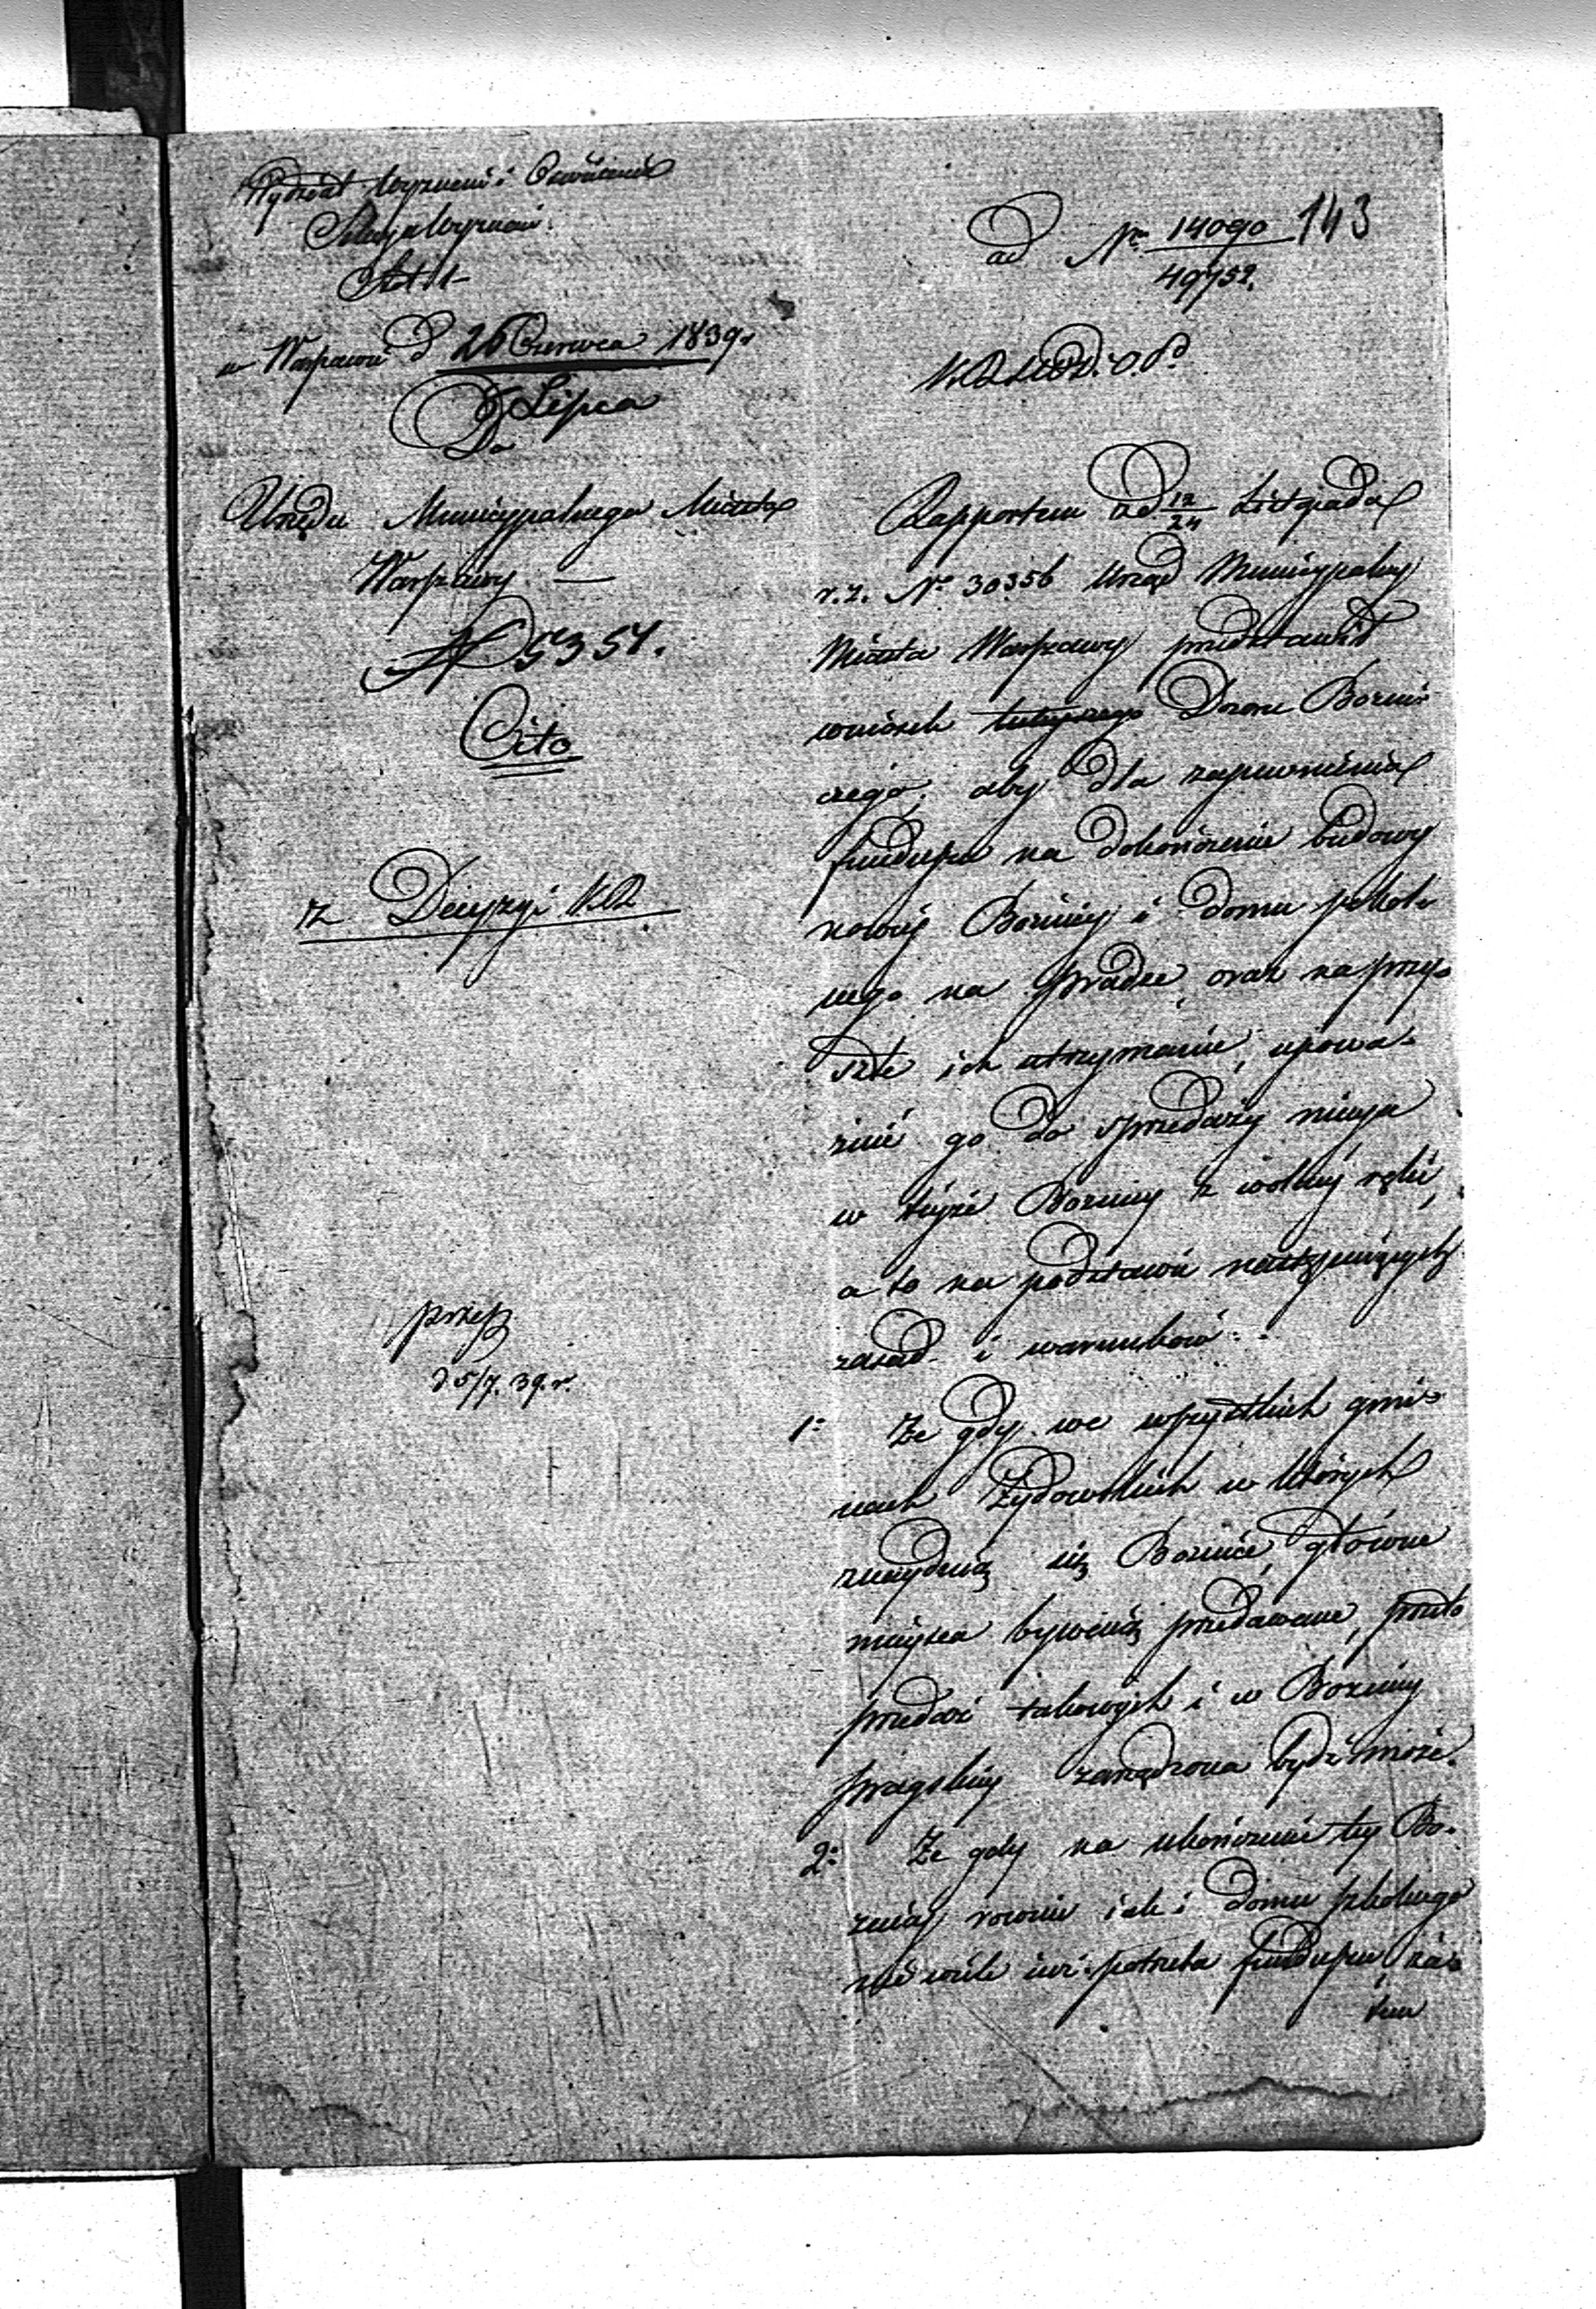 Wydział Wyznań i Oświecenia
Sekcya Wyznań
w Warszawie d 26 Czerwca 1839 r
Lipca
Do
Urzędu Municypalnego Miasta
Warszawy —
N 5351.
Cito
z Decyzyi KR
przep
d 5/7. 39. r.
143
ad Nr 14090
49752.
Rapportem z d 12/24 Listopada
r. z. No 30356 Urząd Municypalny
Miasta Warszawy przedstawił
wniosek tuteyszego Dozoru Bożni-
czego, aby dla zapewnienia
funduszu na dokończenie budowy
nowey Bożnicy i domu szkol-
nego na Pradze oraz na przy-
szłe ich utrzymanie, upowa-
żnić go do sprzedaży mieysc
w teyże Bożnicy z wolney ręki,
a to na podstawie następuiących
zasad i warunków:
1o Że gdy we wszystkich gmi-
nach Żydowskich w których
znayduią się Bożnice, główne
mieysca bywaią przedawane, przeto
przedaż takowych i w Bożnicy
pragskiey zarządzona bydź może.
2o Że gdy na ukończenie tey Bo-
żnicy równie iak i domu szkolnego
nie wiele iuż potrzeba funduszu, za-
tem